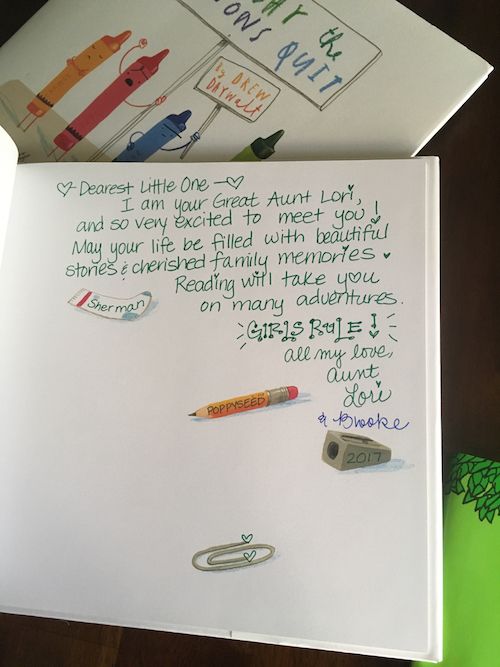 THE
AY the
ONS QUIT
by DREW
DAYWALT
Dearest Little One
I am your Great Aunt Lori,
and so very excited to meet you!
May your life be filled with beautiful
stories & cherished family memories
Reading will take you
on many adventures.
GIRLS RULE!
all my love,
aunt
Lori
& Brooke
Sherman
POPPYSEED
2017